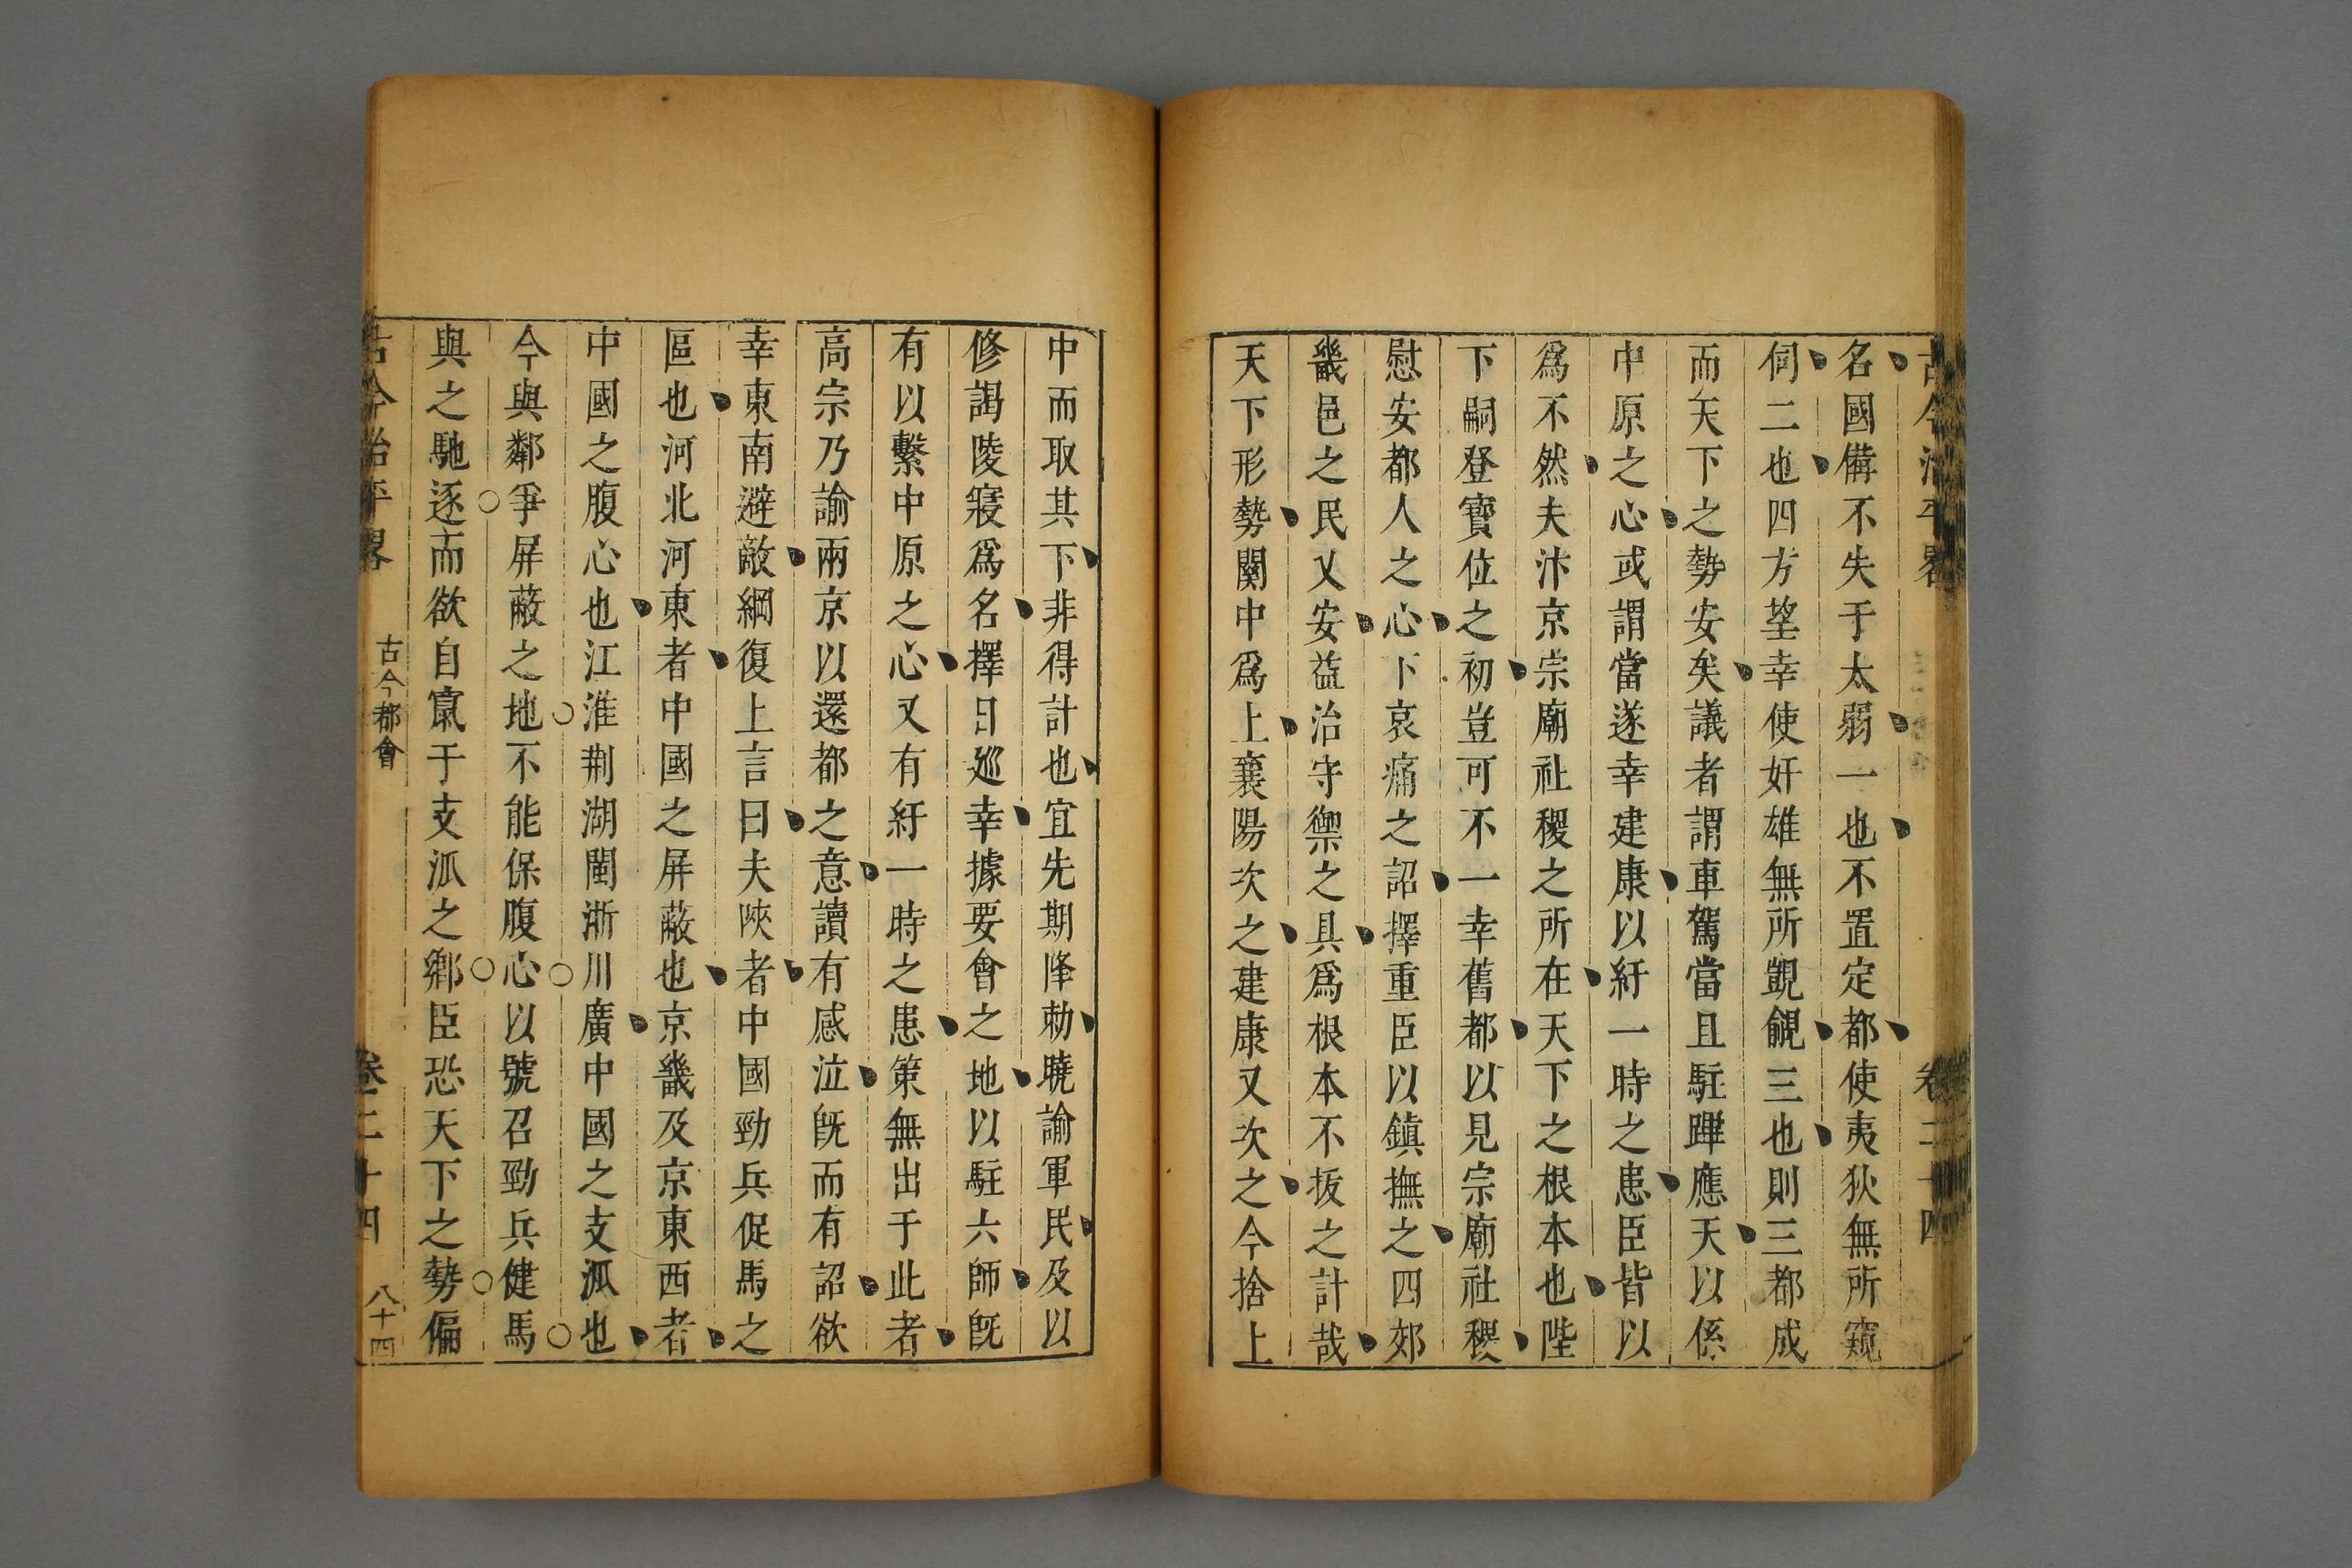 古今治平畧 卷二十四
名國備不失于太弱一也不置定都使夷狄無所窺
伺二也四方望幸使奸雄無所覬覦三也則三都成
而天下之勢安矣議者謂車駕當且駐蹕應天以係
中原之心或謂當遂幸建康以紓一時之患臣皆以
爲不然夫汴京宗廟社稷之所在天下之根本也陛
下嗣登寶位之初豈可不一幸舊都以見宗廟社稷
慰安都人之心下哀痛之詔擇重臣以鎮撫之四郊
畿邑之民乂安益治守禦之具爲根本不拔之計哉
天下形勢關中爲上襄陽次之建康又次之今捨上
中而取其下非得計也宜先期降勅曉諭軍民及以
修謁陵寢爲名擇日巡幸據要會之地以駐六師旣
有以繫中原之心又有紓一時之患策無出于此者
高宗乃諭兩京以還都之意讀有感泣旣而有詔欲
幸東南避敵綱復上言曰夫陜者中國勁兵促馬之
區也河北河東者中國之屏蔽也京畿及京東西者
中國之腹心也江淮荆湖閩浙川廣中國之支泒也
今與鄰爭屏蔽之地不能保腹心以號召勁兵健馬
與之馳逐而欲自竄于支泒之鄉臣恐天下之勢偏
古今治平畧 古今都會 卷二十四 八十四